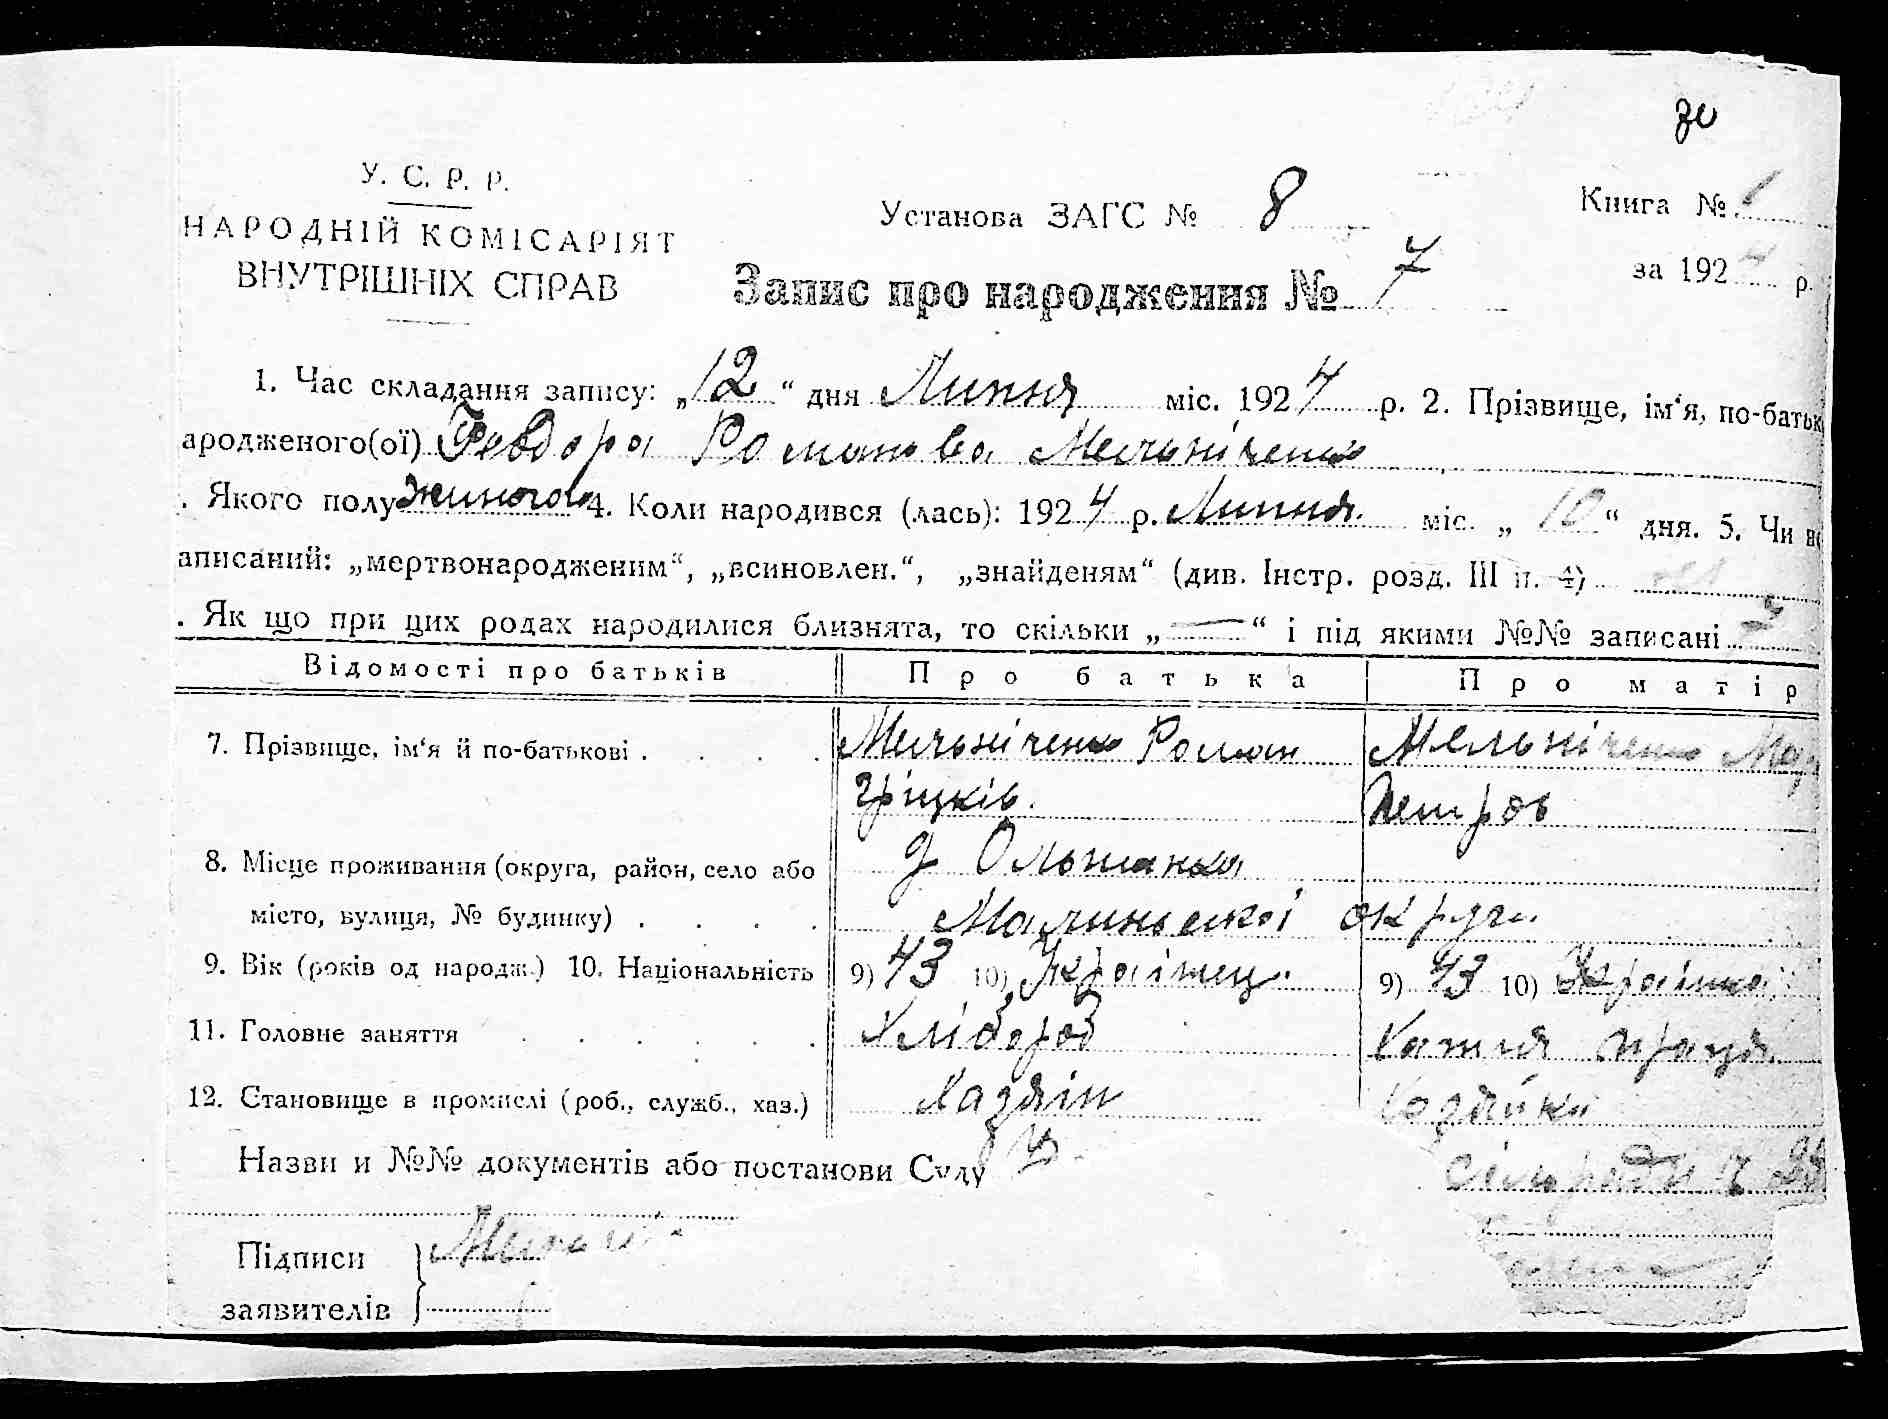 зе
У. С. Р. Р.
НАРОДНІЙ КОМІСАРІЯТ
ВНУТРІШНІХ СПРАВ
Установа ЗАГС № 8
Книга № 1
за 1924 р.
Запис про народження № 7
1. Час складання запису: „12“ дня Липня міс. 1924 р. 2. Прізвище, ім‘я, по-батьк
ародженого(ої) Феодора Романова Мельніченко
. Якого полу жиночого 4. Коли народився (лась): 1924 р. Липня міс. „10“ дня. 5. Чи не
аписаний: „мертвонародженим“, „всиновлен.“, „знайденям“ (див. Інстр. розд. III п. 4)
. Як що при цих родах народилися близнята, то скільки „—“ і під якими №№ записані
Відомості про батьків Про батька Про матір
7. Прізвище, ім‘я й по-батькові . Мельніченко Роман Мельніченко
Гріцків. Петров
8. Місце проживання (округа, район, село або д Ольшанка
місто, вулиця, № будинку) . Малинської округи
9. Вік (років од народж.) 10. Національність 9) 43 10) Українец. 9) 43 10) Українка
11. Головне заняття Хлібороб Хатня праця
12. Становище в промислі (роб., служб., хаз.) Хазяін Хозяйка
Назви и №№ документів або постанови Суду сільради
Підписи
заявителів